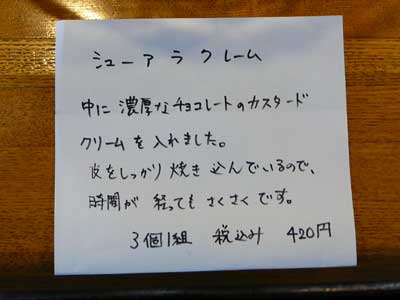 シューアラクレーム
中に濃厚なチョコレートのカスタード
クリームを入れました。
皮をしっかり焼き込んでいるので、
時間が経ってもさくさくです。
3個1組 税込み 420円